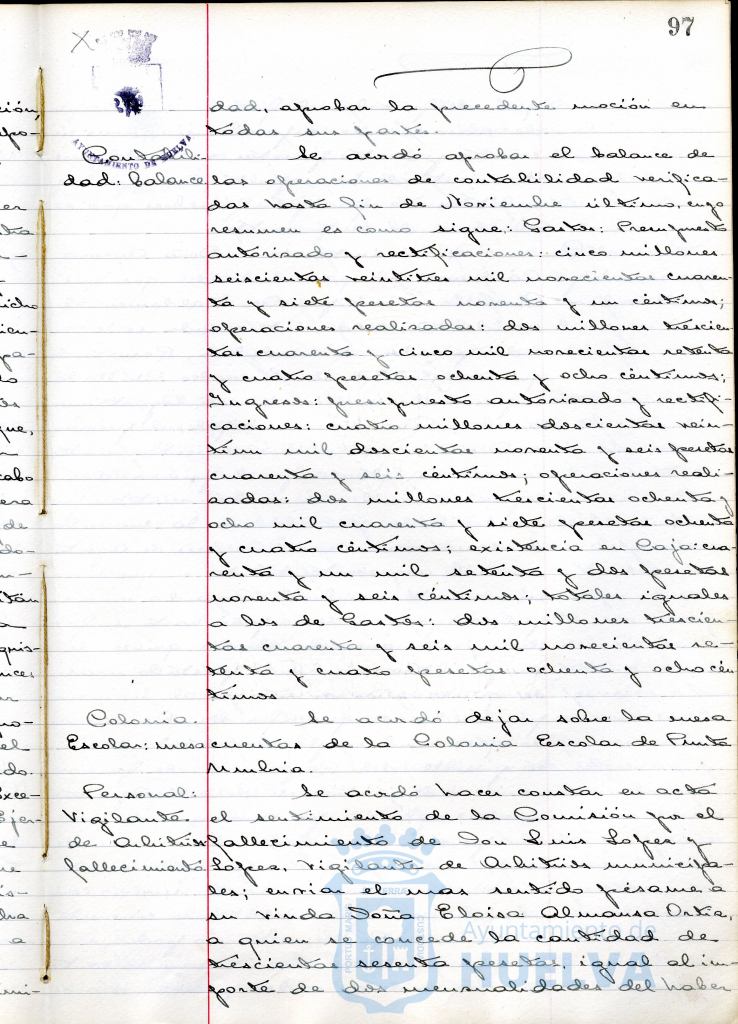 97
AYUNTAMIENTO DE HUELVA
dad, aprobar la precedente moción en
todas sus partes.
Contabili-
dad: balance
Se acordó aprobar el balance de
las operaciones de contabilidad verifica-
das hasta fin de Noviembre último, cuyo
resumen es como sigue: Gastos: Presupuesto
autorizado y rectificaciones: cinco millones
seiscientas veintitres mil novecientas cuaren-
ta y siete pesetas noventa y un céntimos;
operaciones realizadas: dos millones trescien-
tas cuarenta y cinco mil novecientas setenta
y cuatro pesetas ochenta y ocho céntimos;
Ingresos: presupuesto autorizado y rectifi-
caciones: cuatro millones doscientas vein-
tiun mil doscientas noventa y seis pesetas
cuarenta y seis céntimos; operaciones reali-
zadas: dos millones trescientas ochenta y
ocho mil cuarenta y siete pesetas ochenta
y cuatro céntimos; existencia en Caja: cua-
renta y un mil setenta y dos pesetas
noventa y seis céntimos; totales iguales
a los de Gastos: dos millones trescien-
tas cuarenta y seis mil novecientas se-
tenta y cuatro pesetas ochenta y ocho cén-
timos
Colonia
Escolar: mesa
Se acordó dejar sobre la mesa
cuentas de la Colonia Escolar de Punta
Umbria.
Personal:
Vigilante
de Arbitrios
fallecimiento
Se acordó hacer constar en acta
el sentimiento de la Comisión por el
fallecimiento de Don Luis Lopez y
Lopez, vigilante de Arbitrios municipa-
les; enviar el mas sentido pésame a
su viuda Doña Eloisa Almansa Ortiz,
a quien se concede la cantidad de
trescientas sesenta pesetas, igual al im-
porte de dos mensualidades del haber
Ayuntamiento de
HUELVA